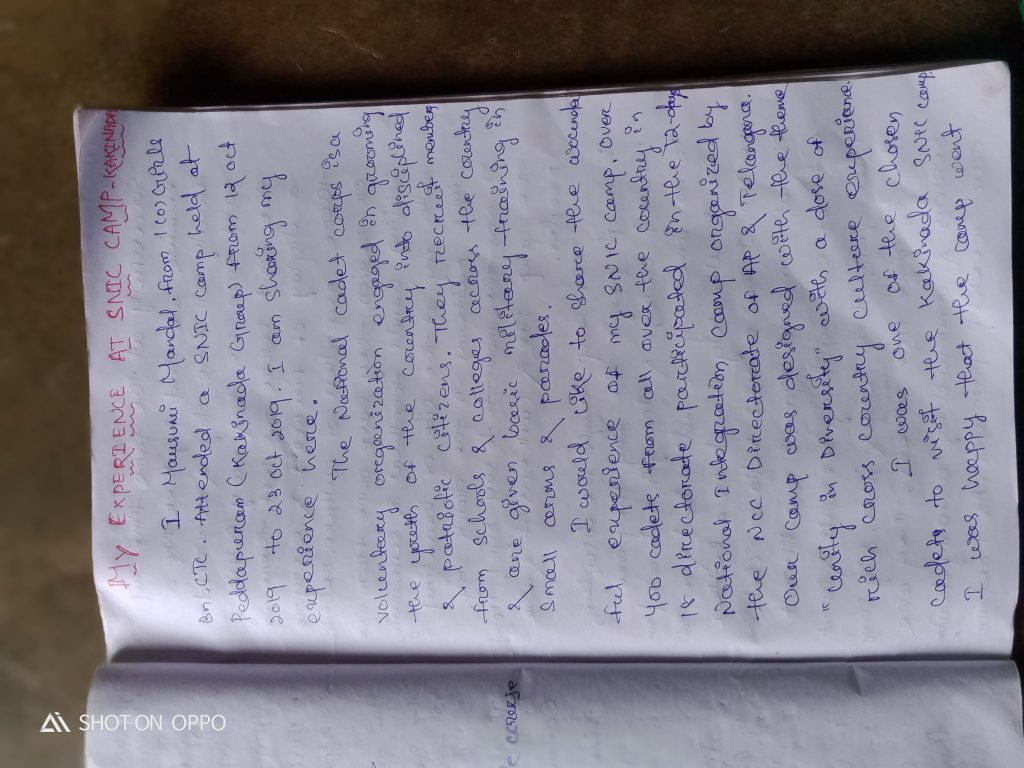 MY EXPERIENCE AT SNIC CAMP-KAKINADA
I Mausini Mandal, from 1(O) Girls
Bn. CTC. Attended a SNIC camp held at
Peddapuram (Kakinada Group) from 12 oct
2019 to 23 oct 2019. I am sharing my
experience here.
The National cadet corps is a
voluntary organization engaged in grooming
the youth of the country into disciplined
& patriotic citizens. They recruit members
from schools & colleges across the country
& are given basic military training in
Small arms & parades.
I would like to share the wonder
ful experience of my SNIC camp. over
400 cadets from all over the country in
18 directorate participated in the 12-days
National Integration Camp organized by
the NCC Directorate of AP & Telangana.
Our camp was designed with the theme
"Unity in Diversity" with a dose of
rich cross country culture experience
I was one of the chosen
cadets to visit the Kakinada SNIC camp.
I was happy that the camp went
course
SHOT ON OPPO